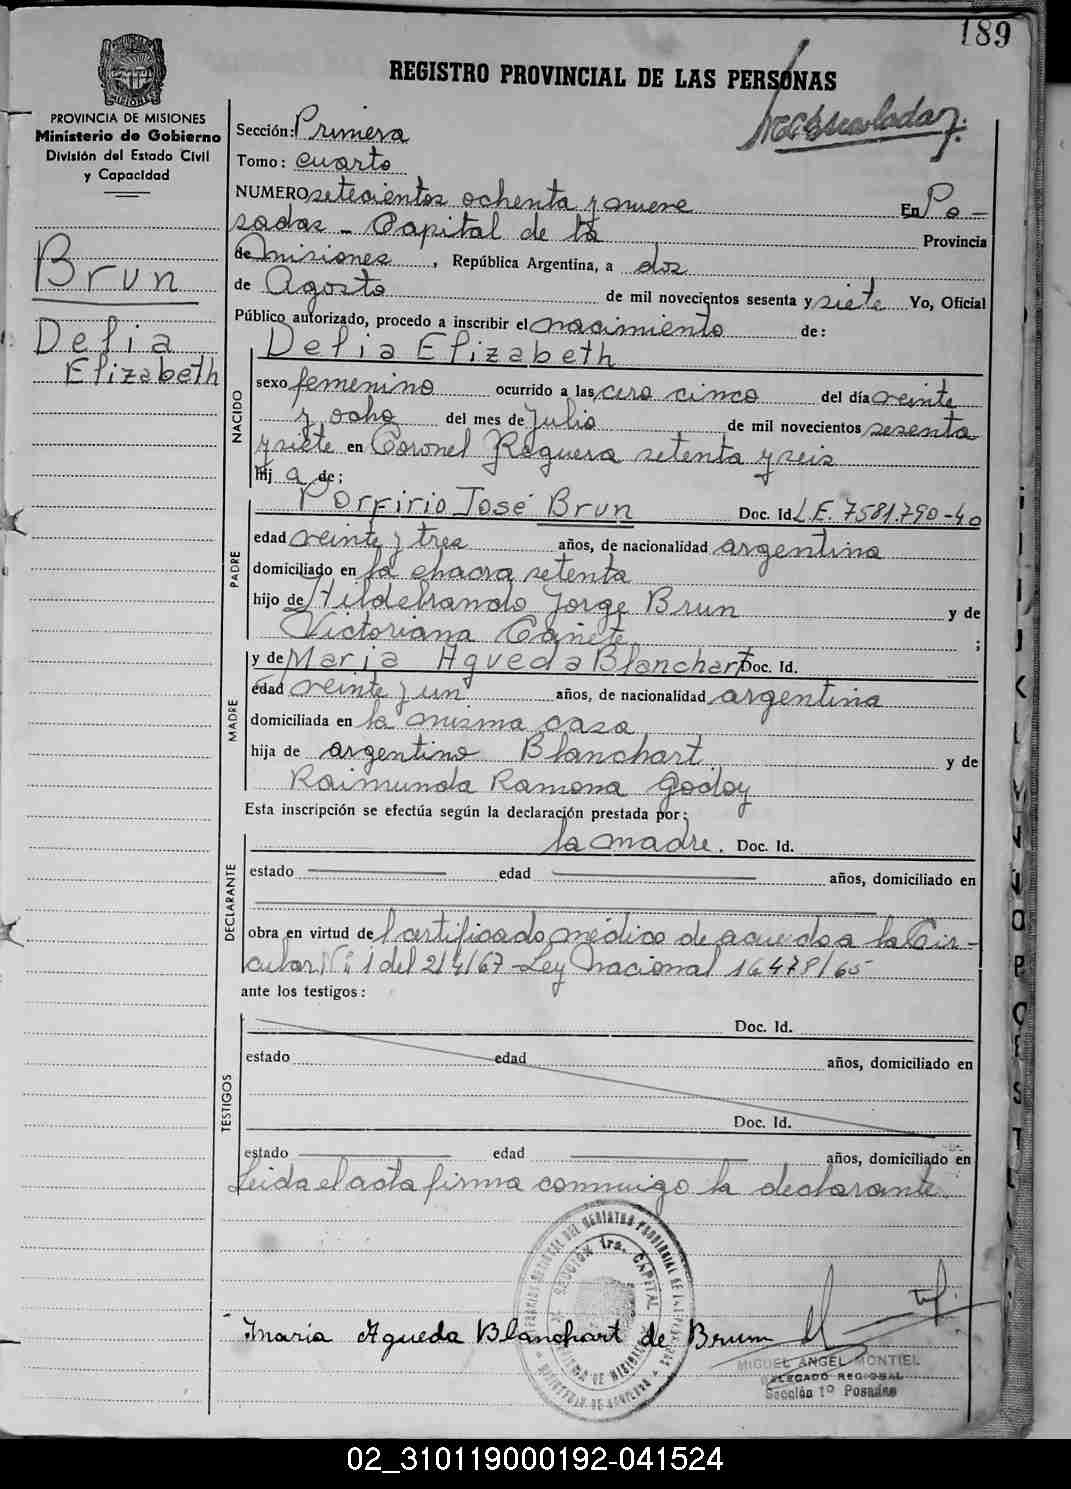 189
REGISTRO PROVINCIAL DE LAS PERSONAS
PROVINCIA DE MISIONES
Ministerio de Gobierno
División del Estado Civil
y Capacidad
Brun
Delia
Elizabeth
Sección: Primera
Tomo: cuarto
NUMERO setecientos ochenta y nueve En Po-
sadas - Capital de la Provincia
de Misiones, República Argentina, a dos
de Agosto de mil novecientos sesenta y siete Yo, Oficial
Público autorizado, procedo a inscribir el nacimiento de:
Delia Elizabeth
NACIDO
sexo femenino ocurrido a las cero cinco del día veinte
y ocho del mes de Julio de mil novecientos sesenta
y siete en Coronel Reguera setenta y seis
hij a de:
Porfirio José Brun Doc. Id. L.E. 7581.790-40
PADRE
edad veinte y tres años, de nacionalidad argentina
domiciliado en la chacra setenta
hijo de Hildebrando Jorge Brun y de
Victoriana Cañete ;
y de Maria Agueda Blanchart Doc. Id.
MADRE
edad veinte y un años, de nacionalidad argentina
domiciliada en la misma casa
hija de argentino Blanchart y de
Raimunda Ramona Godoy
Esta inscripción se efectúa según la declaración prestada por:
la madre. Doc. Id.
DECLARANTE
estado edad años, domiciliado en
obra en virtud del certificado médico de acuerdo a la Cir-
cular Nº 1 del 2/4/67 - Ley Nacional 16478/65
ante los testigos:
TESTIGOS
Doc. Id.
estado edad años, domiciliado en
Doc. Id.
estado edad años, domiciliado en
Leida el acta firma conmigo la declarante
SECCIÓN 1ra. CAPITAL
Maria Agueda Blanchart de Brum
MIGUEL ANGEL MONTIEL
DELEGADO REGIONAL
Sección 1º Posadas
02_310119000192-041524